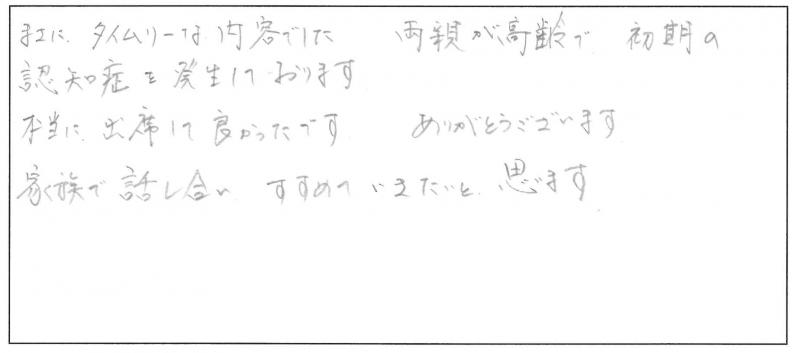 私に タイムリーな内容でした 両親が高齢で 初期の
認知症を発生しております
本当に出席して良かったです ありがとうございます
家族で話し合い すすめていきたいと思います